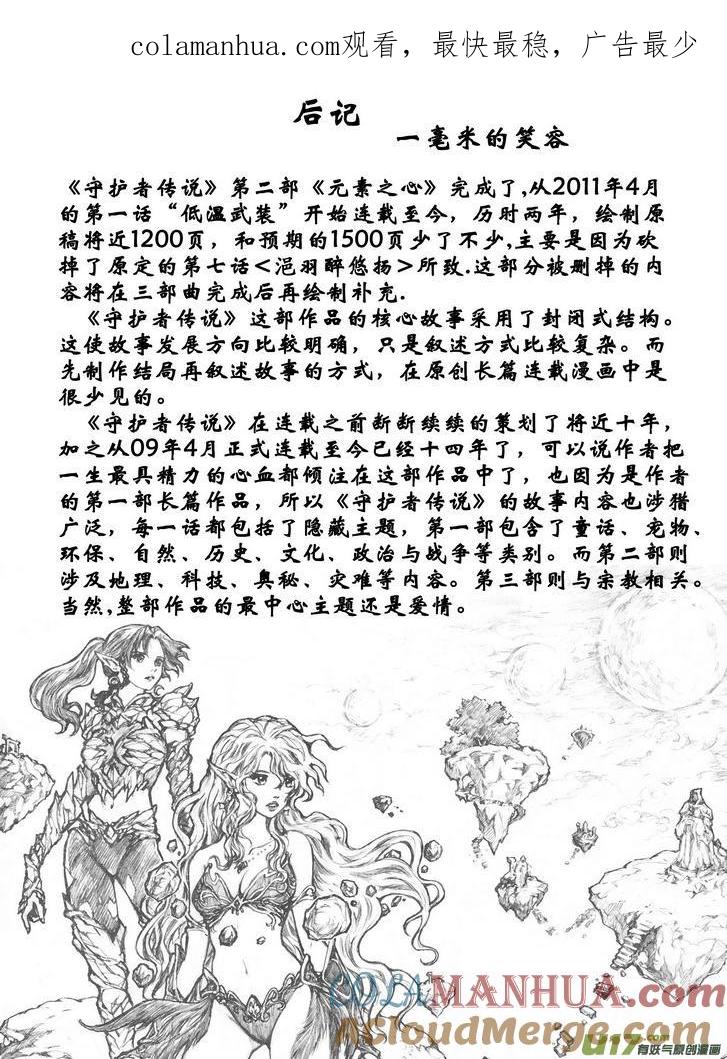 colamanhua.com观看，最快最稳，广告最少
后记
一毫米的笑容
《守护者传说》第二部《元素之心》完成了,从2011年4月
的第一话“低温武装”开始连载至今，历时两年，绘制原
稿将近1200页，和预期的1500页少了不少,主要是因为砍
掉了原定的第七话<浥羽醉悠扬>所致.这部分被删掉的内
容将在三部曲完成后再绘制补充.
《守护者传说》这部作品的核心故事采用了封闭式结构。
这使故事发展方向比较明确，只是叙述方式比较复杂。而
先制作结局再叙述故事的方式，在原创长篇连载漫画中是
很少见的。
《守护者传说》在连载之前断断续续的策划了将近十年，
加之从09年4月正式连载至今已经十四年了，可以说作者把
一生最具精力的心血都倾注在这部作品中了，也因为是作者
的第一部长篇作品，所以《守护者传说》的故事内容也涉猎
广泛，每一话都包括了隐藏主题，第一部包含了童话、宠物、
环保、自然、历史、文化、政治与战争等类别。而第二部则
涉及地理、科技、奥秘、灾难等内容。第三部则与宗教相关。
当然,整部作品的最中心主题还是爱情。
COLAMANHUA.COM
AcloudMerge.com
U17
有好气原创漫画